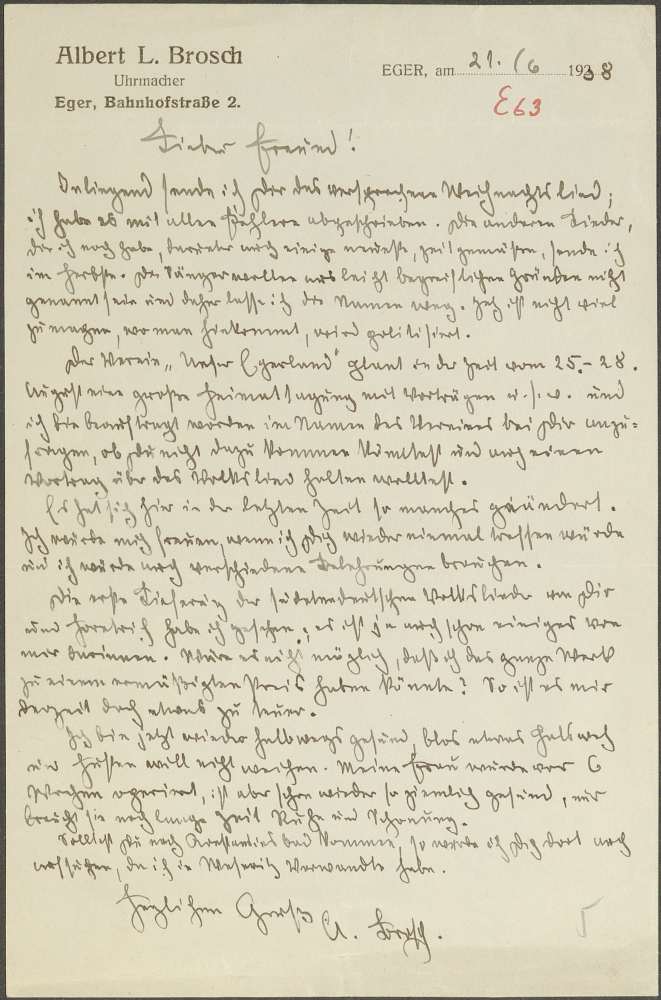 Albert L. Brosch
Uhrmacher
Eger, Bahnhofstraße 2.
EGER, am 21. /6 1938
E63
Lieber Freund!
Inliegend sende ich Dir das versprochene Weihnachtslied;
ich habe es mit allen Fehlern abgeschrieben. Die anderen Lieder,
die ich noch habe, darunter auch einige neueste, zeitgemässen, sende ich
im Herbste. Die Sänger wollen aus leicht begreiflichen Gründen nicht
genannt sein und daher lasse ich die Namen weg. Jetzt ist nicht viel
zu machen, wo man hinkommt, wird politisiert.
Der Verein „Unser Egerland" plant in der Zeit vom 25.-28.
August eine grosse Heimattagung mit Vorträgen u.s.w. und
ich bin beauftragt worden im Namen des Vereines bei Dir anzu=
fragen, ob Du nicht dazu kommen könntest und auch einen
Vortrag über das Volkslied halten wolltest.
Es hat sich hier in der letzten Zeit so manches geändert.
Ich würde mich freuen, wenn ich Dich wieder einmal treffen würde
und ich würde auch verschiedene Belehrungen brauchen.
Die erste Lieferung der sudetendeutschen Volkslieder von Dir
und Horntrich habe ich gesehen; es ist ja auch schon einiges von
mir darinnen. Wäre es nicht möglich, daß ich das ganze Werk
zu einem ermäßigten Preis haben könnte? So ist es mir
derzeit doch etwas zu teuer.
Ich bin jetzt wieder halbwegs gesund, blos etwas Halsweh
und Husten will nicht weichen. Meine Frau wurde vor 6
Wochen operiert, ist aber schon wieder so ziemlich gesund, nur
braucht sie noch lange Zeit Ruhe und Schonung.
Solltest Du nach Konstantinsbad kommen, so werde ich Dich dort auch
aufsuchen, da ich in Weseritz Verwandte habe.
Herzlichen Gruß
A. Brosch.
5